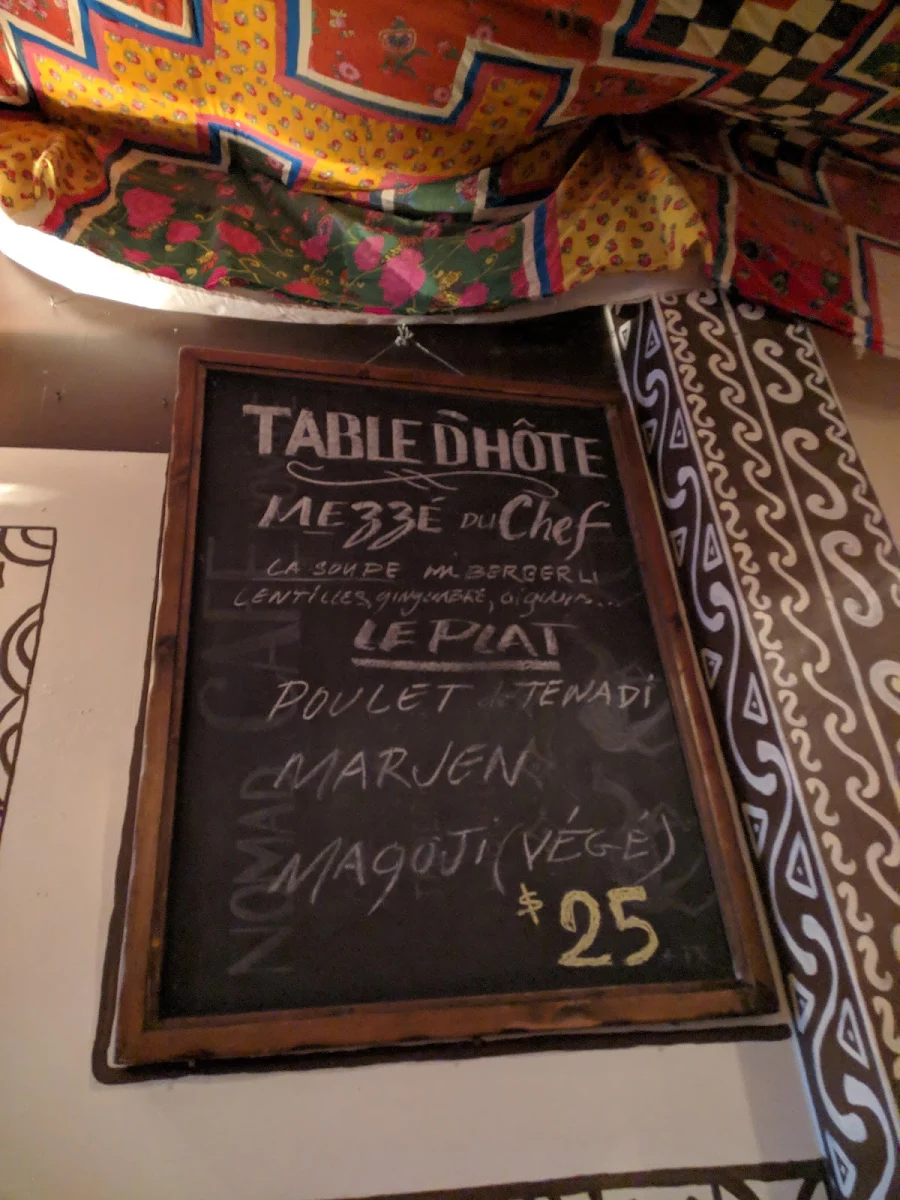 TABLE D'HÔTE
MEZZÉ DU Chef
LA SOUPE MERBERLI
LENTILLES, gingembre, oignons...
LE PLAT
POULET de TENADI
MARJEN
MAGOJI (VÉGÉ)
$25 + TX
NOMAD CAFE